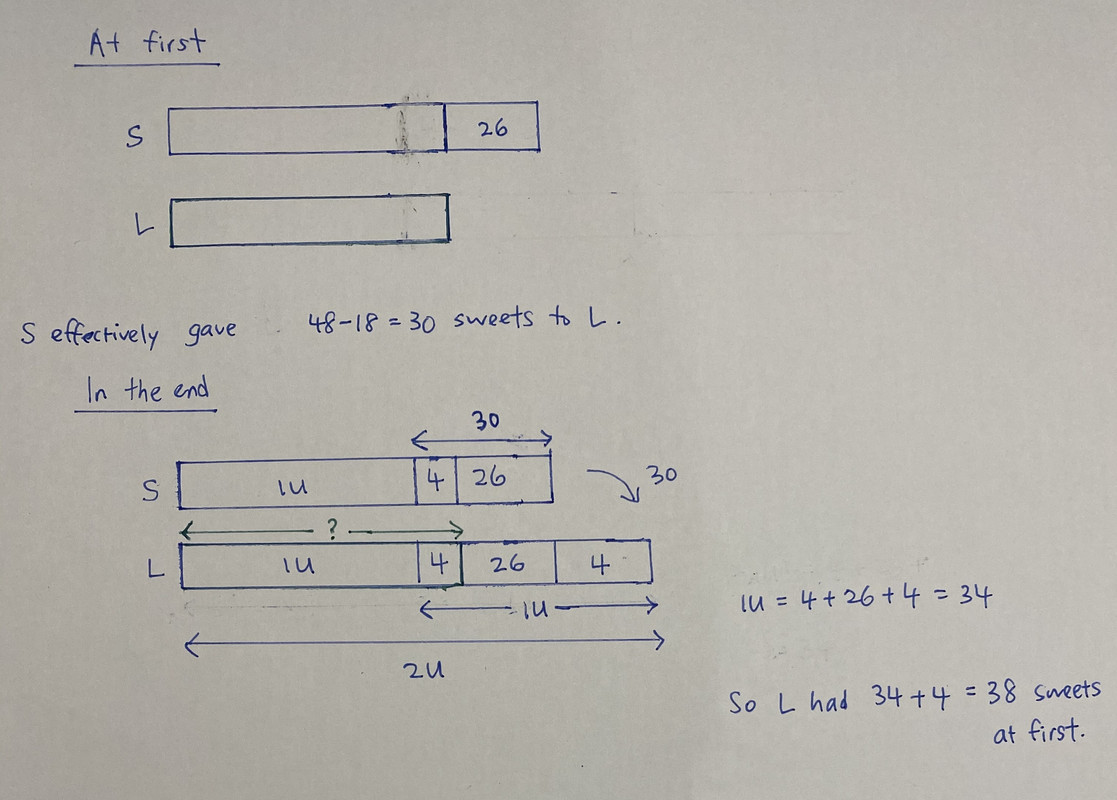 At first
S 26
L
S effectively gave 48-18 = 30 sweets to L.
In the end
30
S 1u 4 26 30
?
L 1u 4 26 4
1u
2u
1u = 4 + 26 + 4 = 34
So L had 34 + 4 = 38 sweets
at first.